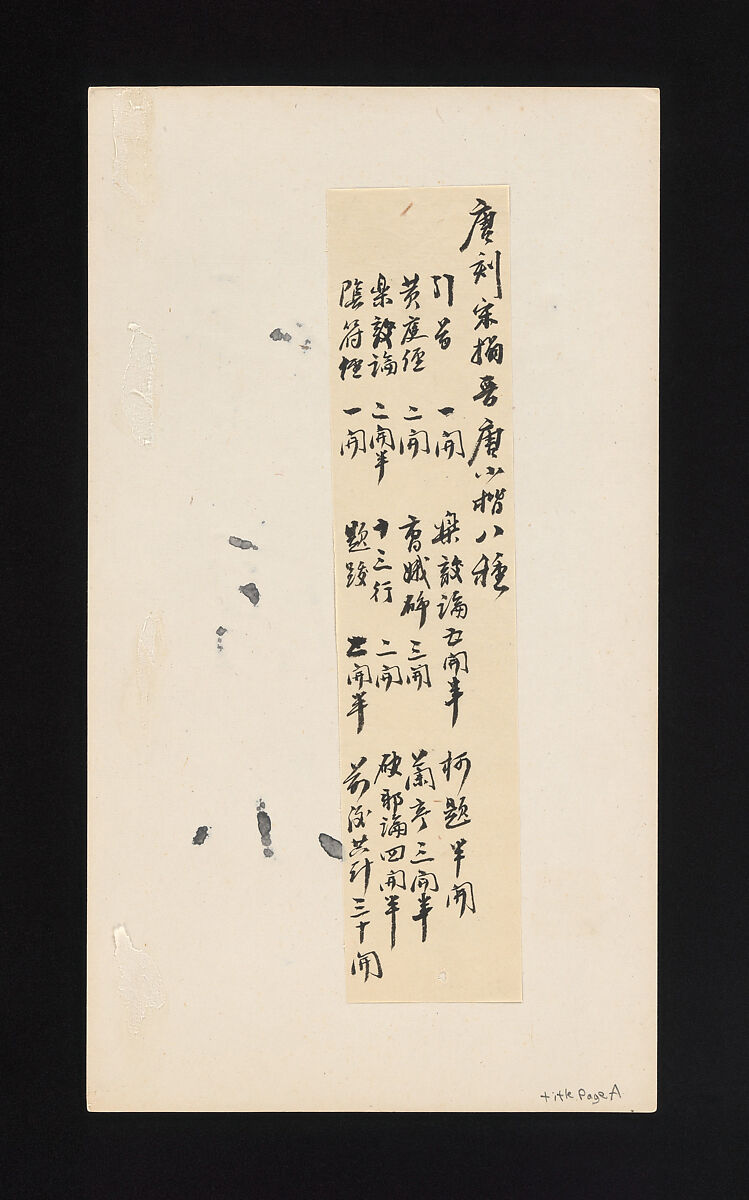 唐刻宋搨晉唐小楷八種
引首 一開 樂毅論五開半 柯題半開
黄庭經 二開 曹娥碑 三開 蘭亭三開半
楽毅論 二開半 十三行 二開 破邪論四開半
陰符經 一開 題跋 開半 前後共計三十開
title Page A